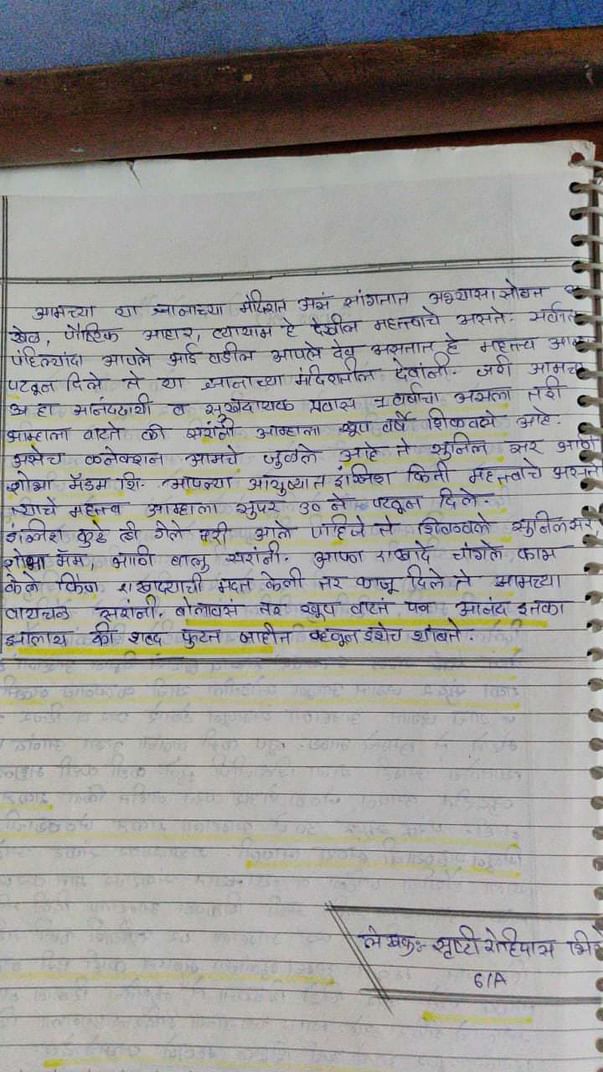 आमच्या या ज्ञानाच्या मंदिरात असं सांगतात अभ्यासासोबत
खेळ, पौष्टिक आहार, व्यायाम हे देखील महत्त्वाचे असते. सर्वात
पहिल्यांदा आपले आई वडील आपले देव असतात हे महत्त्व
पटवून दिले ते या ज्ञानाच्या मंदिरातील देवांनी. जरी आमचा
हा आनंददायी व सुखदायक प्रवास 1 वर्षाचा असला तरी
आम्हाला वाटते की सरांनी आम्हाला खूप वर्षे शिकवले आहे.
असेच कनेक्शन आमचे जुळले आहे ते सुनिल सर आणि
शोभा मॅडम शि. आपल्या आयुष्यात इंग्लिश किती महत्त्वाचे असते
त्याचे महत्त्व आम्हाला सुपर 30 ने पटवून दिले.
इंग्लिश कुठे ही गेले तरी आले पाहिजे ते शिकवले सुनिल सर
शोभा मॅम, आणि बालु सरांनी. आपण एखादे चांगले काम
केले किंवा एखाद्याची मदत केली तर काजू दिले ते आमच्या
वायचळ सरांनी. बोलावसं तर खूप वाटत पन आनंद इतका
झालाय की शब्द फुटत नाहीत म्हणून इथेच थांबते.
लेखक:- सृष्टी रोहिदास
6/A